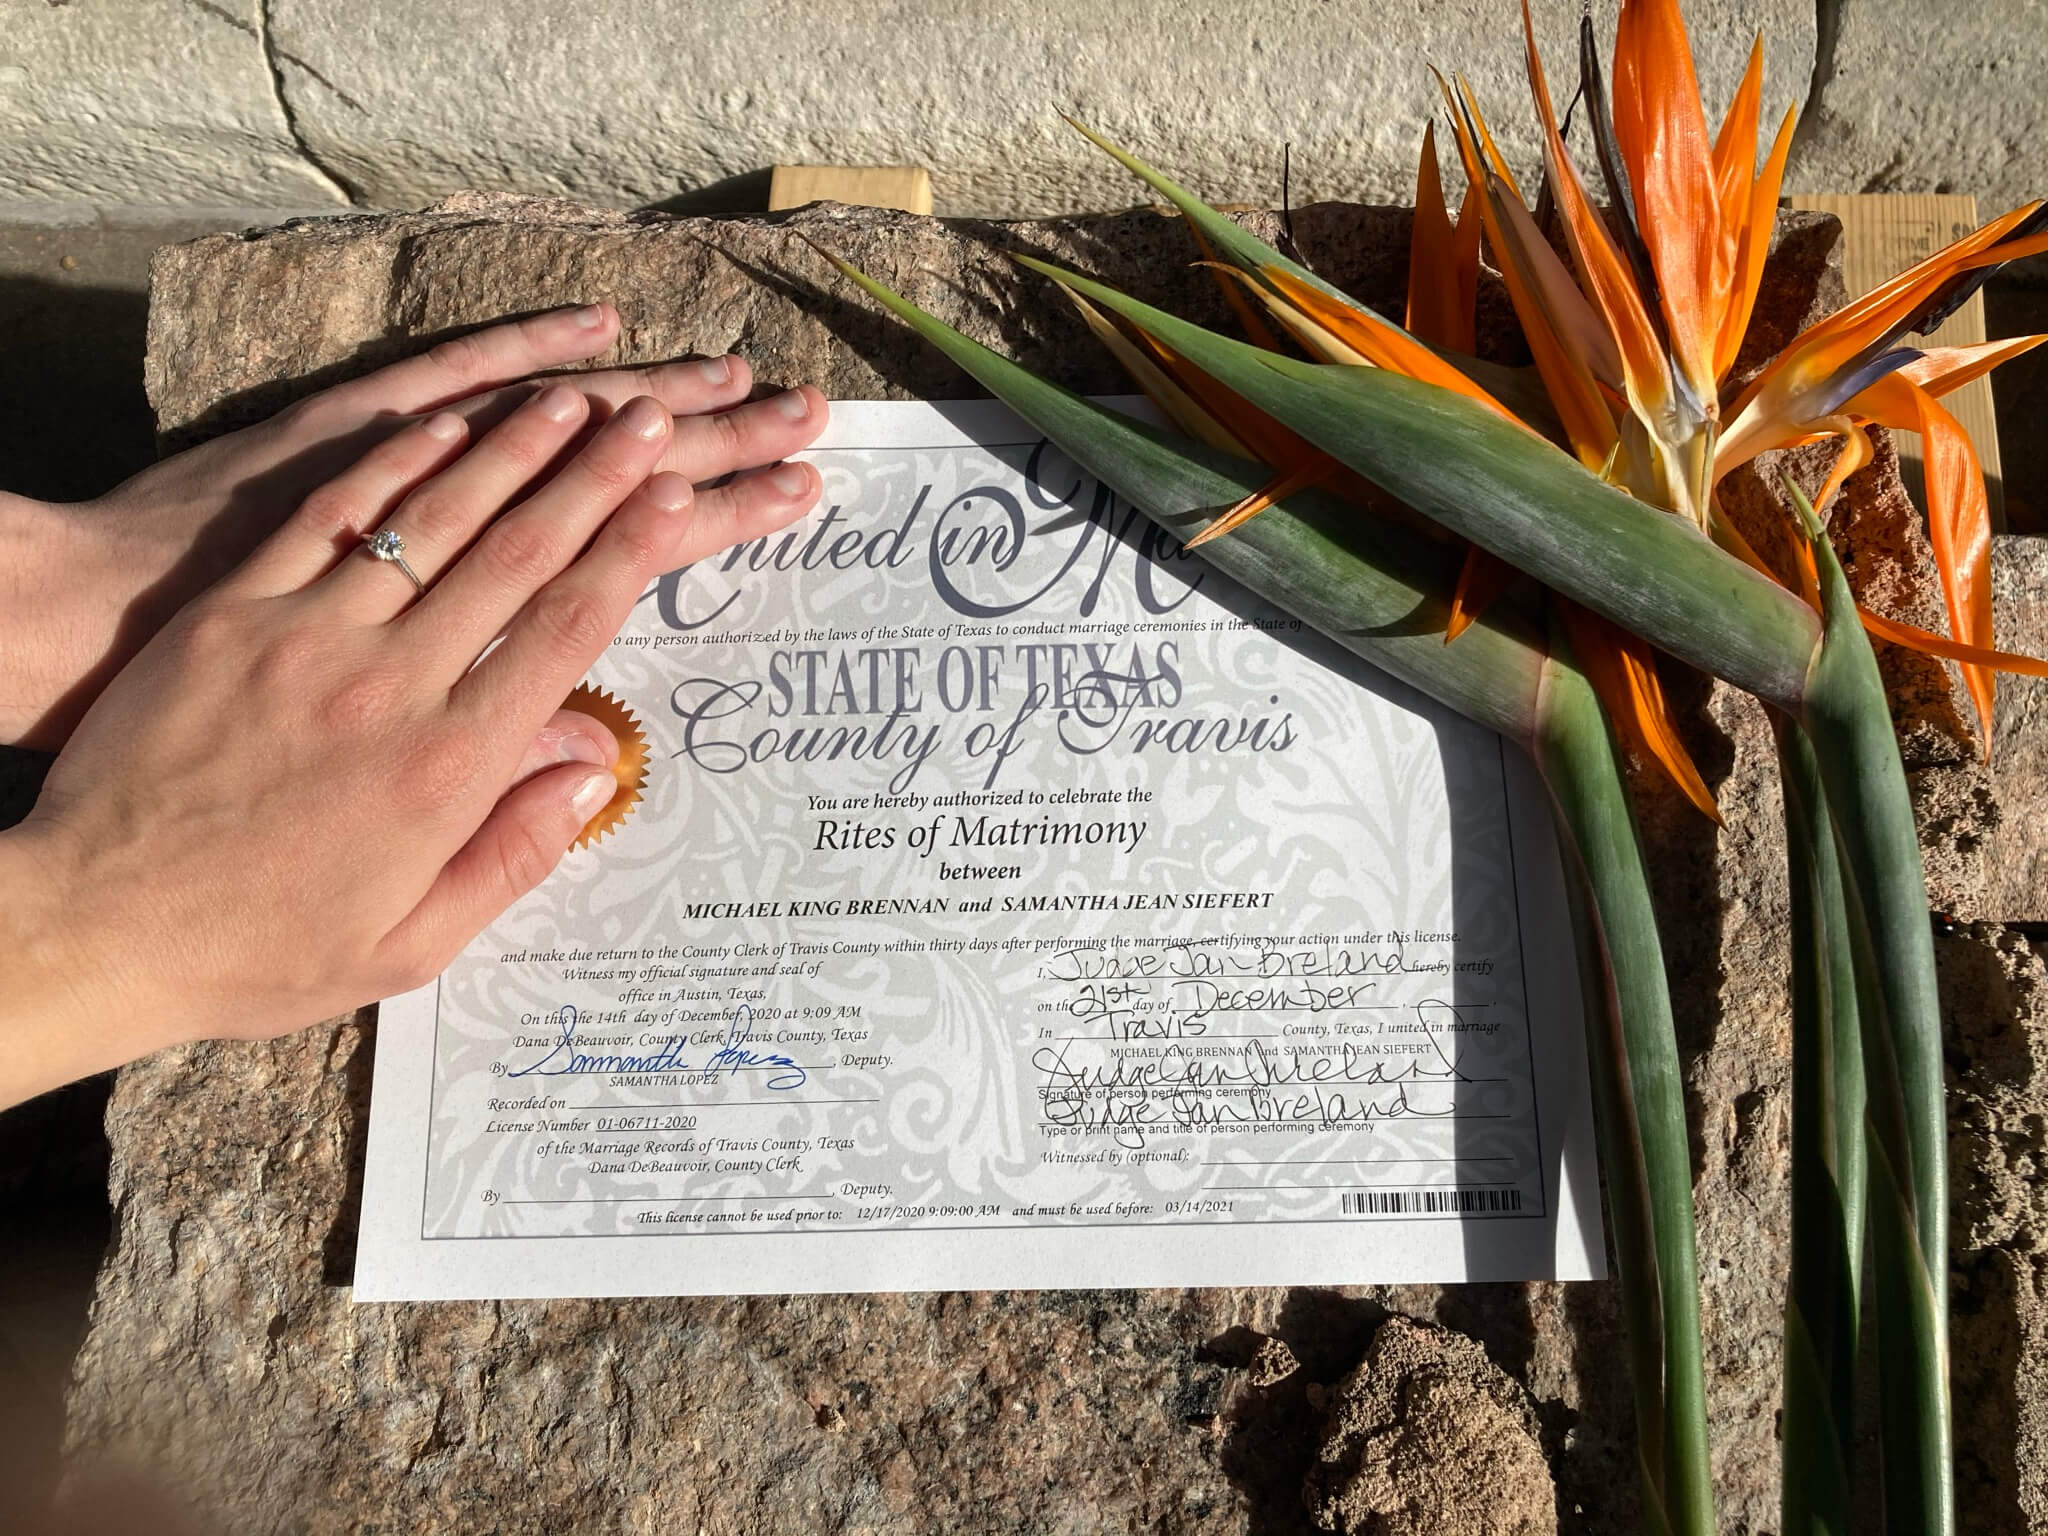 United in Ma
to any person authorized by the laws of the State of Texas to conduct marriage ceremonies in the State of
STATE OF TEXAS
County of Travis
You are hereby authorized to celebrate the
Rites of Matrimony
between
MICHAEL KING BRENNAN and SAMANTHA JEAN SIEFERT
and make due return to the County Clerk of Travis County within thirty days after performing the marriage, certifying your action under this license.
Witness my official signature and seal of
office in Austin, Texas,
On this the 14th day of December, 2020 at 9:09 AM
Dana DeBeauvoir, County Clerk, Travis County, Texas
By Samantha Lopez, Deputy.
SAMANTHA LOPEZ
Recorded on
License Number 01-06711-2020
of the Marriage Records of Travis County, Texas
Dana DeBeauvoir, County Clerk
By , Deputy.
I, Judge Jan Breland hereby certify
on the 21st day of December , .
In Travis County, Texas, I united in marriage
MICHAEL KING BRENNAN and SAMANTHA JEAN SIEFERT
Judge Jan Breland
Signature of person performing ceremony
Judge Jan Breland
Type or print name and title of person performing ceremony
Witnessed by (optional):
This license cannot be used prior to: 12/17/2020 9:09:00 AM and must be used before: 03/14/2021